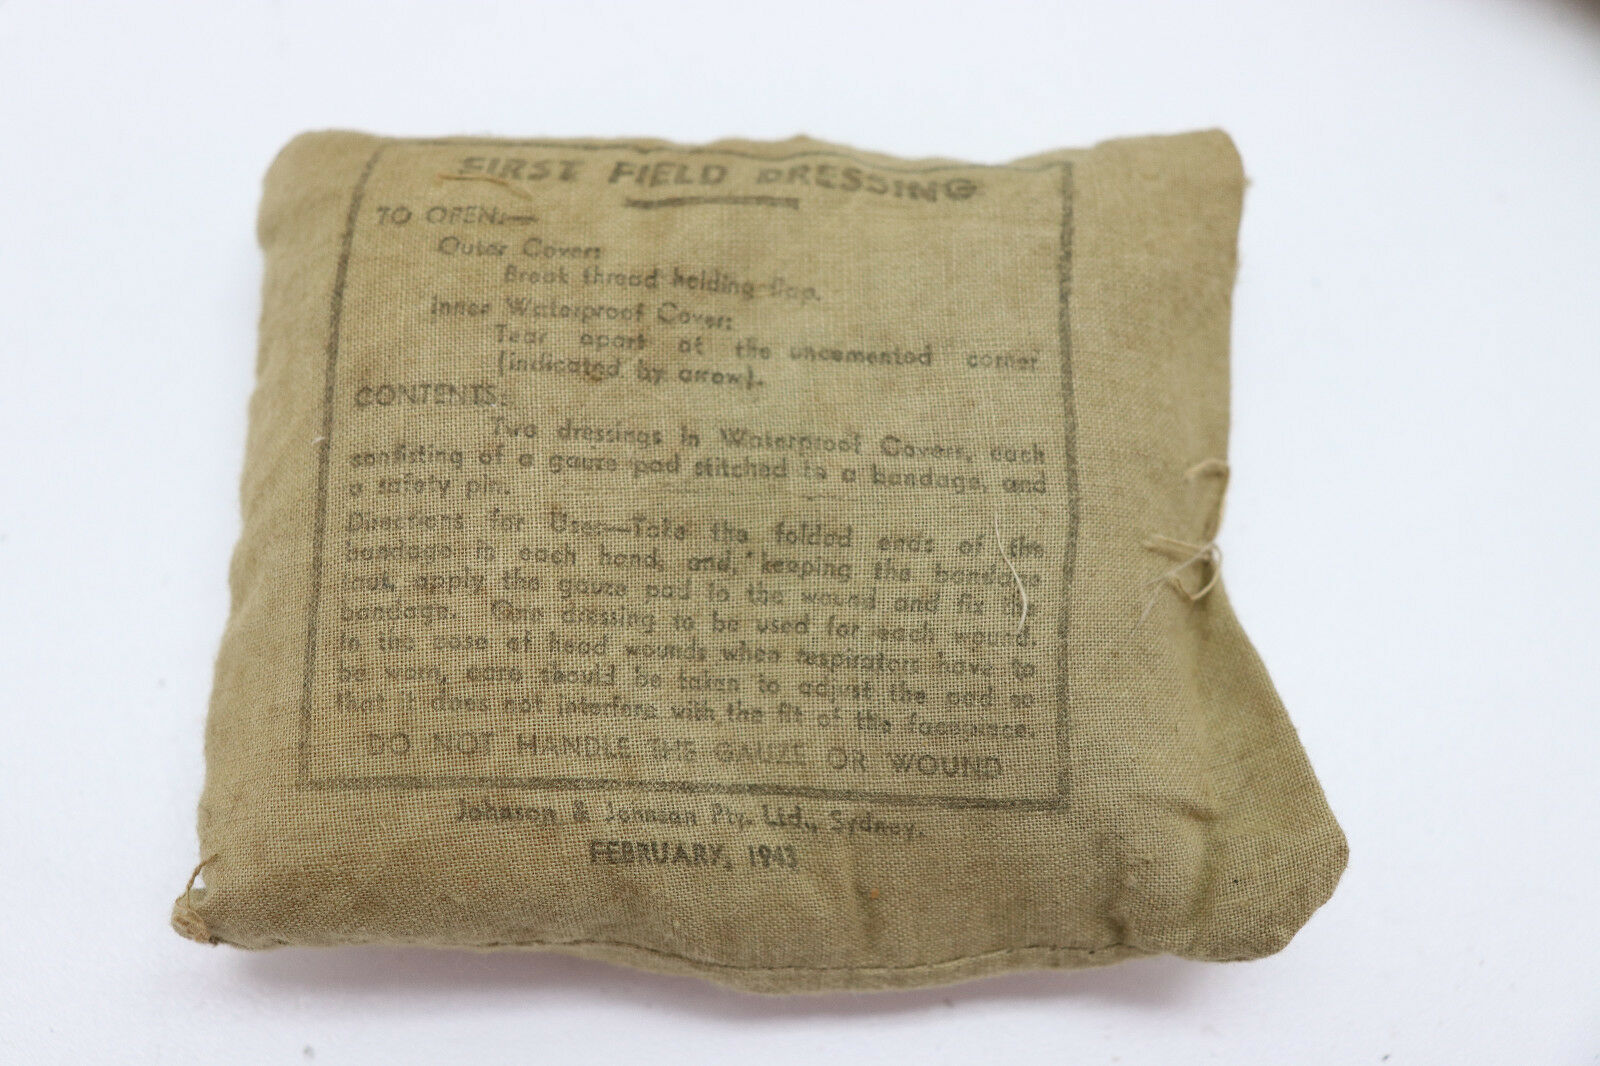 FIRST FIELD DRESSING
TO OPEN:—
Outer Cover:
Break thread holding flap.
Inner Waterproof Cover:
Tear apart at the uncemented corner
(indicated by arrow).
CONTENTS:
Two dressings in Waterproof Covers, each
consisting of a gauze pad stitched to a bandage, and
a safety pin.
Directions for Use:—Take the folded ends of the
bandage in each hand, and, keeping the bandage
taut, apply the gauze pad to the wound and fix the
bandage. One dressing to be used for each wound.
In the case of head wounds when respirators have to
be worn, care should be taken to adjust the pad so
that it does not interfere with the fit of the facepiece.
DO NOT HANDLE THE GAUZE OR WOUND
Johnson & Johnson Pty. Ltd., Sydney.
FEBRUARY, 1943